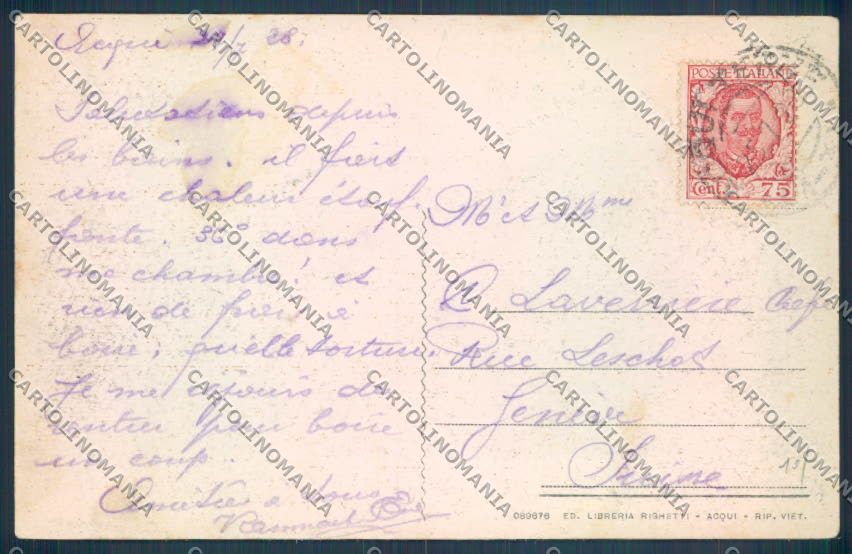 Acqui 30/7 28.
Salutations depuis
les bains. il fait
une chaleur étouf-
fante. 36° dans
ma chambre! et
rien de frais à
boire, quelle torture.
Je me réjouis de
rentrer pour boire
un coup.
Amitiés à tous
Mr et Mme
Lavernière
Rue Leschot
Genève
Suisse
POSTE ITALIANE
Cent. 75
ACQUI
15
089676 ED. LIBRERIA RIGHETTI - ACQUI - RIP. VIET.
CARTOLINOMANIA